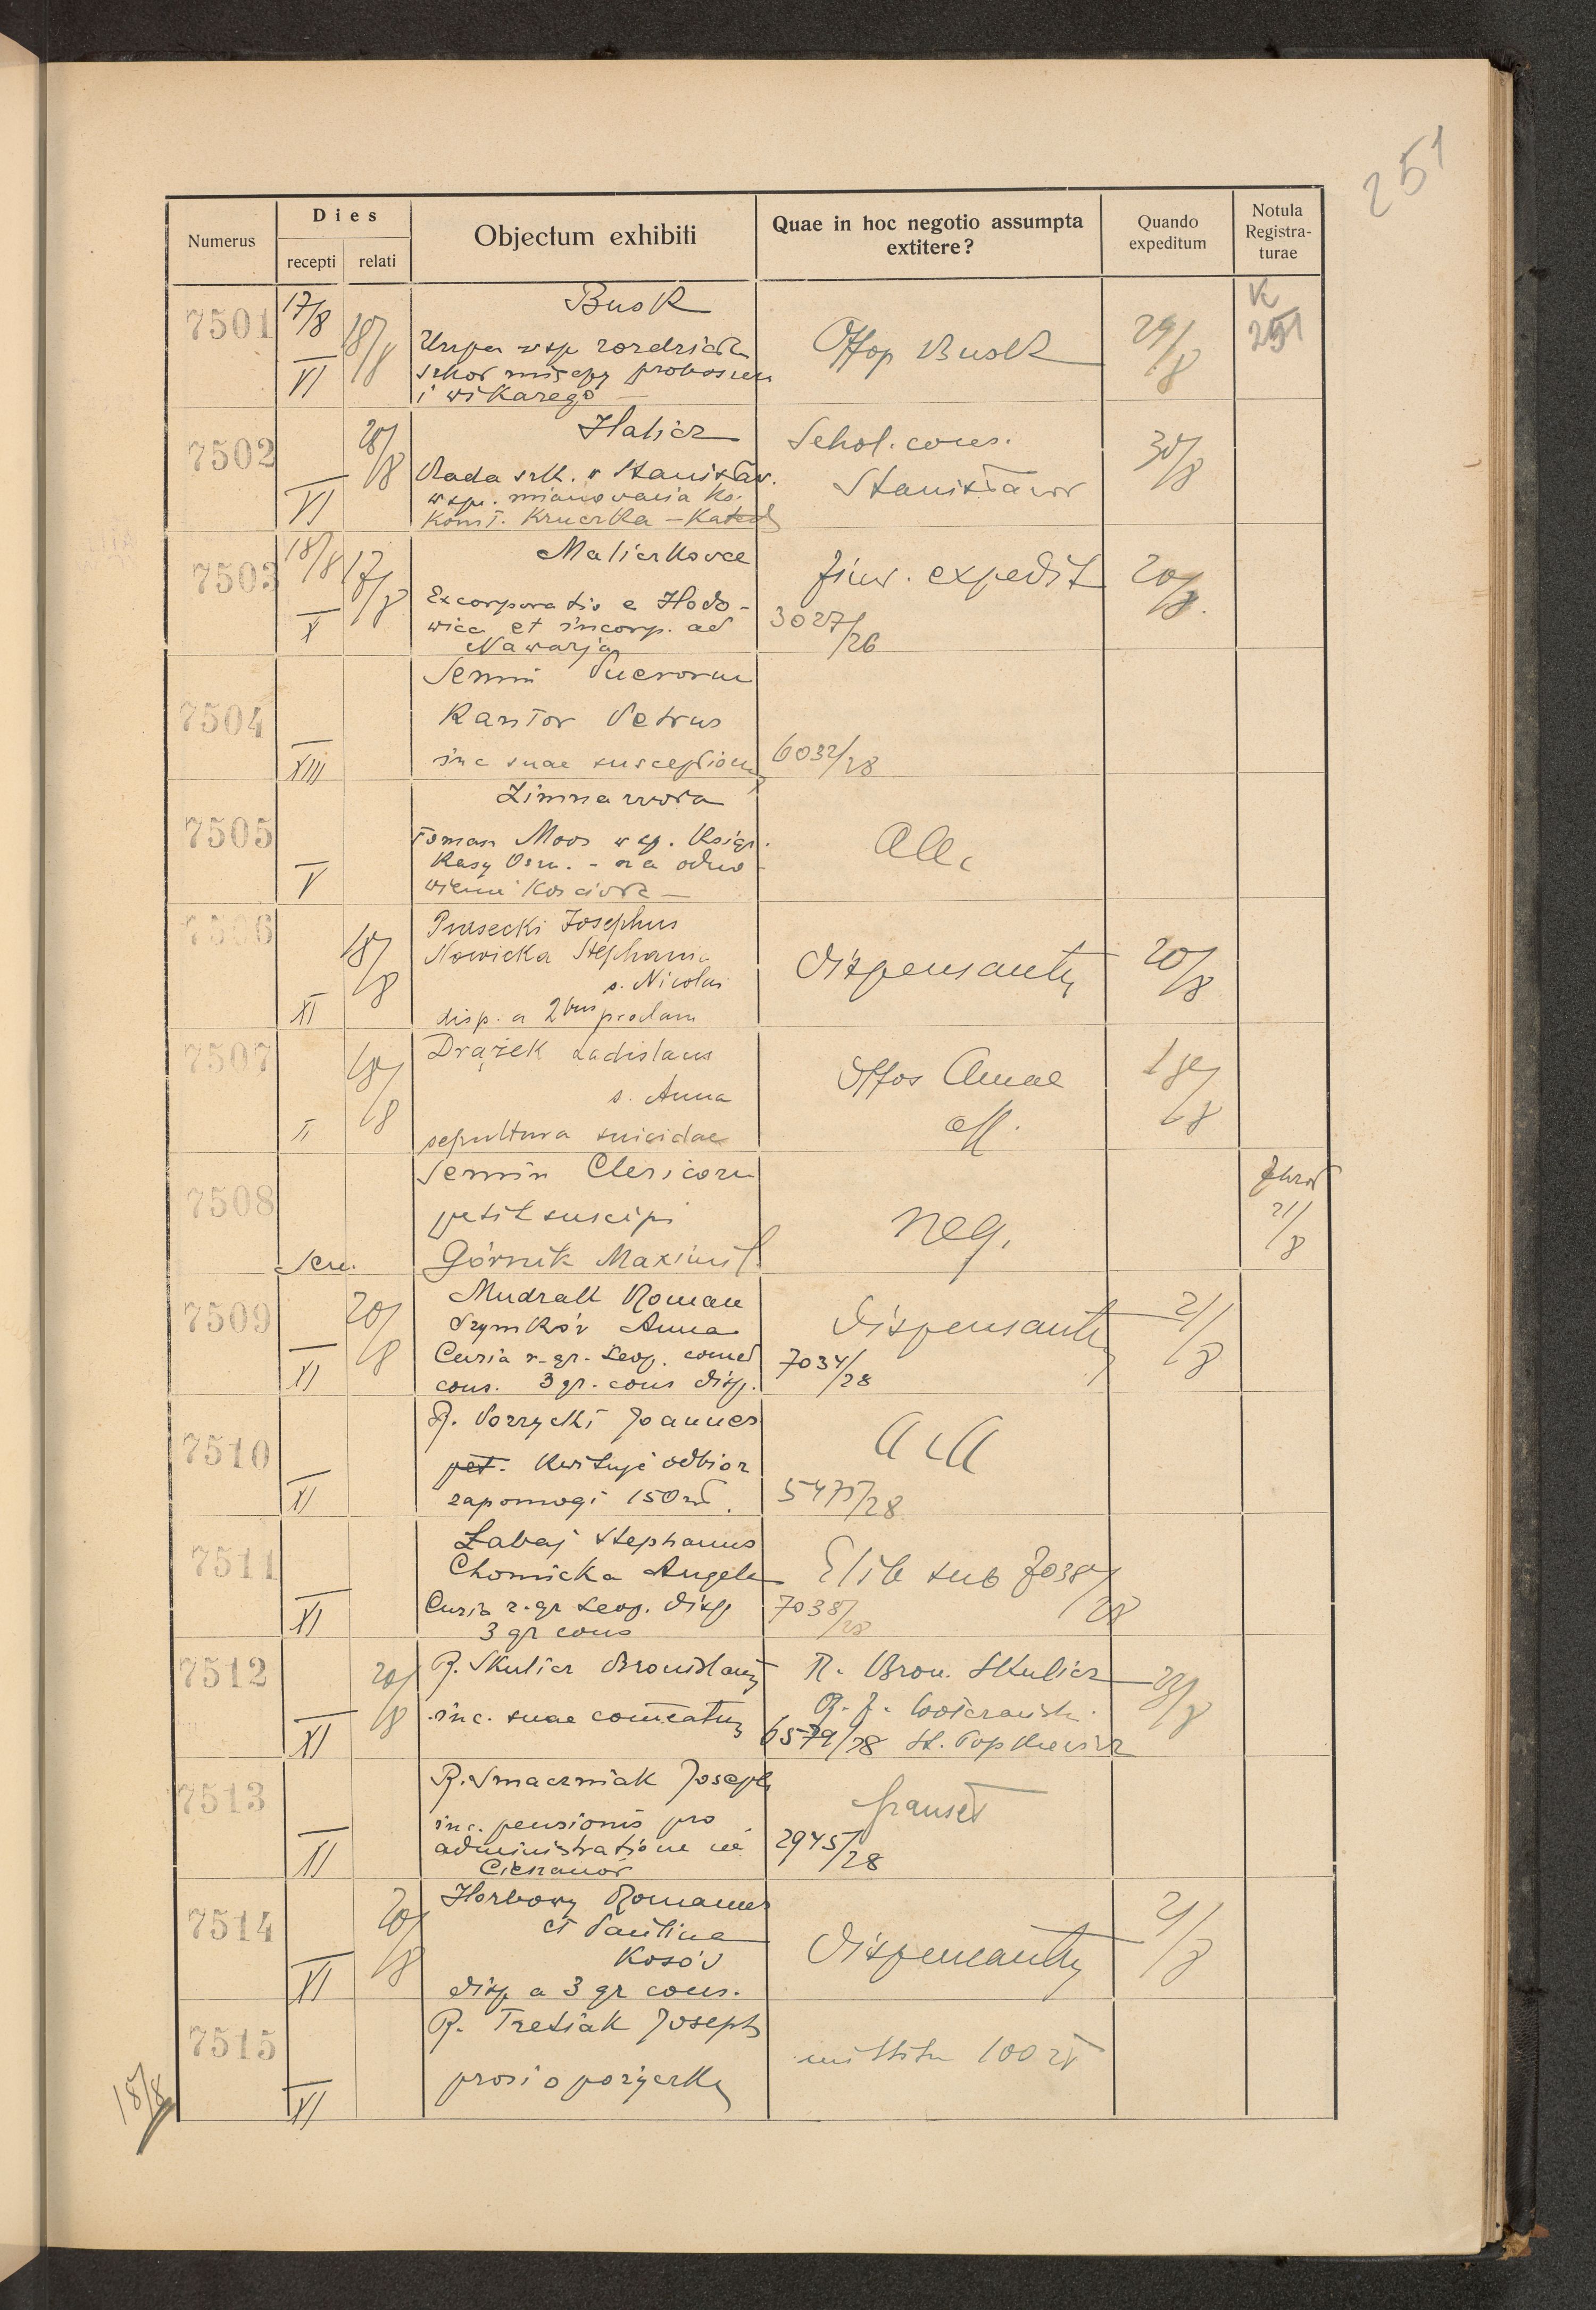 251
Numerus
Dies
recepti relati
Objectum exhibiti
Quae in hoc negotio assumpta
extitere?
Quando
expeditum
Notula
Registra-
turae
7501 17/8 18/8 VI
Busk
wsp rozdziału
szkół między proboszcza
i wikarego
Offop Busk
29/8
K
251
7502 20/8 VI
Halicz
Rada szk. w Stanisław.
wsp. mianowania ks.
Konst. Kruczka - Katech
Schol. cons.
Stanisławow
30/8
7503 18/8 17/8 X
Maliczkowce
Excorporatio e Hodo-
wica et incorp. ad
Nawarja
expedit
3027/26
20/8.
7504 XIII
Semin Puerorum
Kantor Petrus
inc suae susceptionis
6032/28
7505 V
Zimnawoda
Toman Moos wsp.
Kasy Osz. - na odno-
wienie Kościoła
7506 18/8 XI
Josephus
Nowicka Stephania
s. Nicolai
disp. a 2bus proclam
Dispensantur
20/8
7507 18/8 II
Drążek Ladislaus
s. Anna
sepultura suicidae
Offos Annae
aff.
18/8
7508 Sem.
Semin Clericorum
petit suscipi
Górnik Maximil
neg.
21/8
7509 20/8 XI
Mudrak Roman
Szymków Anna
Curia r-gr-Leop. comed
cons. 3 gr. cons disp.
Dispensantur
7034/28
21/8
7510 XI
R. Porzycki Joannes
pet. Kwituje odbiór
zapomogi 150 zł.
5475/28
7511 XI
Labaj Stephanus
Chomicka Angela
Curia r-gr Leop. disp
3 gr cons
sub 7038/28
7038/28
7512 20/8 XI
R. Skulicz Bronislaus
inc. suae comeatus
R. Bron. Skulicz
6579/28 St. Popkiewicz
7513 XI
R. Smaczniak Joseph
inc. pensionis pro
administratione in
Cieszanów
transet
2945/28
7514 20/8 XI
Horbowy Romanus
et Paulina
Kosów
disp a 3 gr cons.
Dispensantur
21/8
7515 XI
R. Tretiak Joseph
prosi o pożyczkę
mittitur 100 zł
18/8